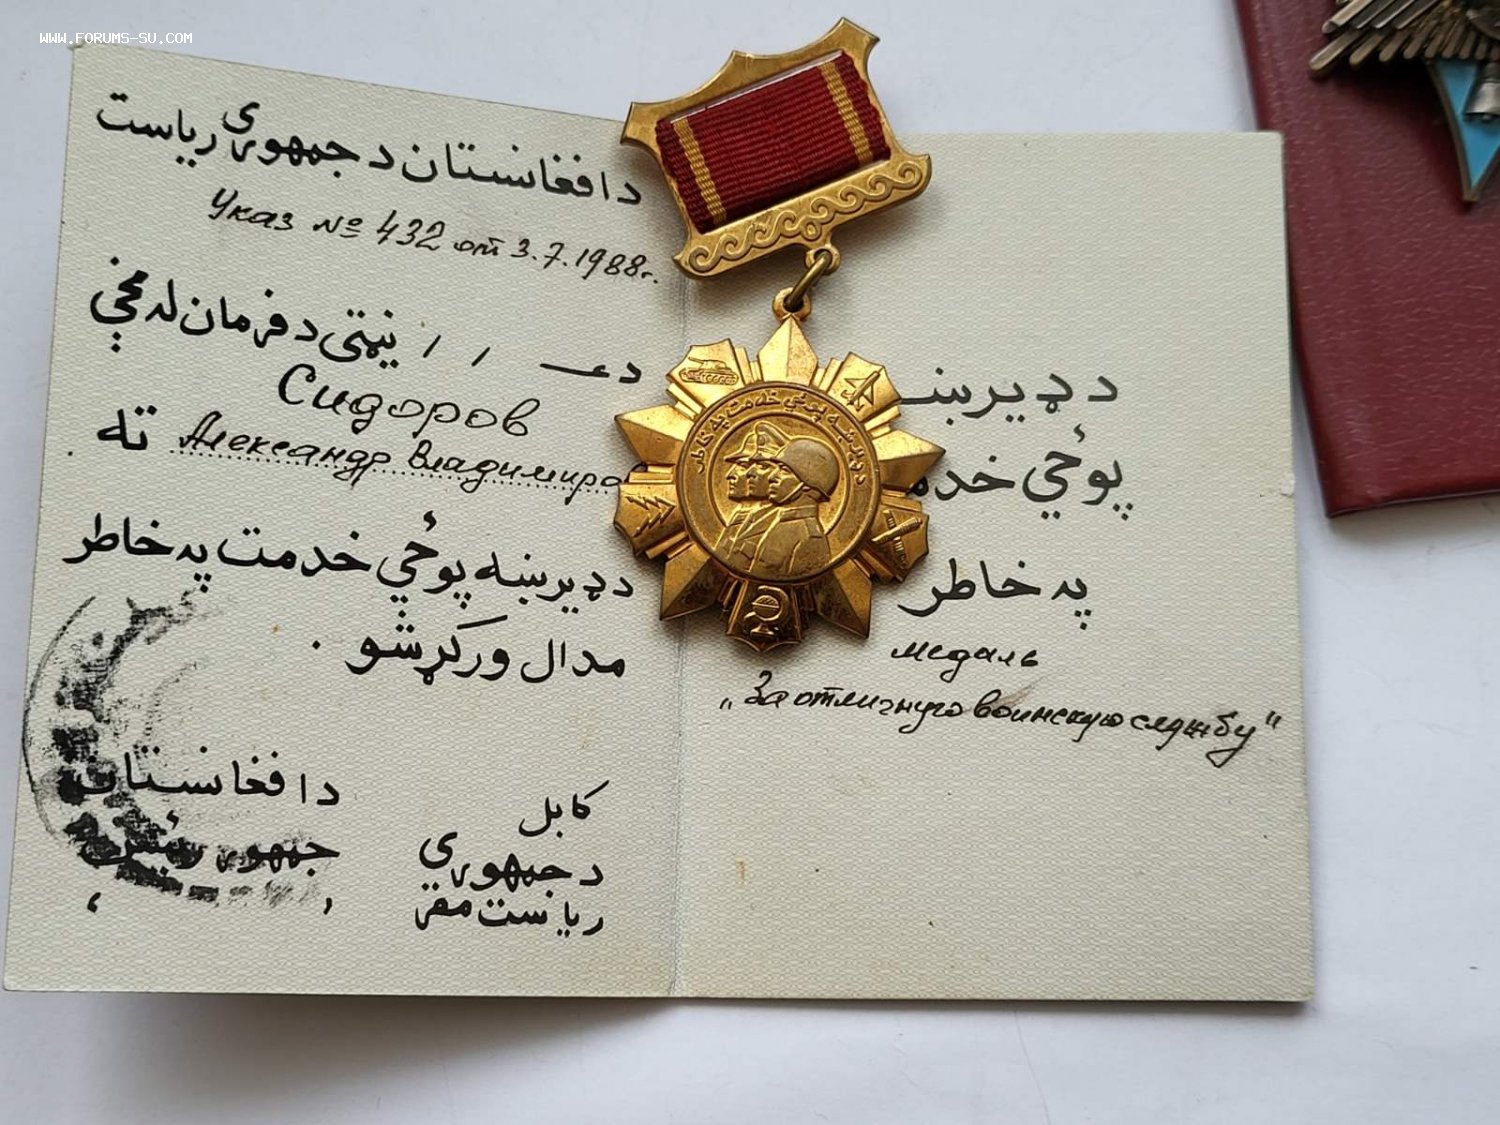 WWW.FORUMS-SU.COM
د افغانستان د جمهوري ریاست
Указ № 432 от 3.7.1988г.
د / / نېټې د فرمان له مخې
Сидоров
Александр Владимиров ته
د ډېر ښه پوځي خدمت په خاطر
مدال ورکړ شو .
د افغانستان
جمهوري رئیس
کابل
د جمهوري
ریاست مقر
د ډېر ښه
پوځي خدم
په خاطر
медаль
„За отличную воинскую службу"
د ډېر ښه پوځي خدمت په خاطر